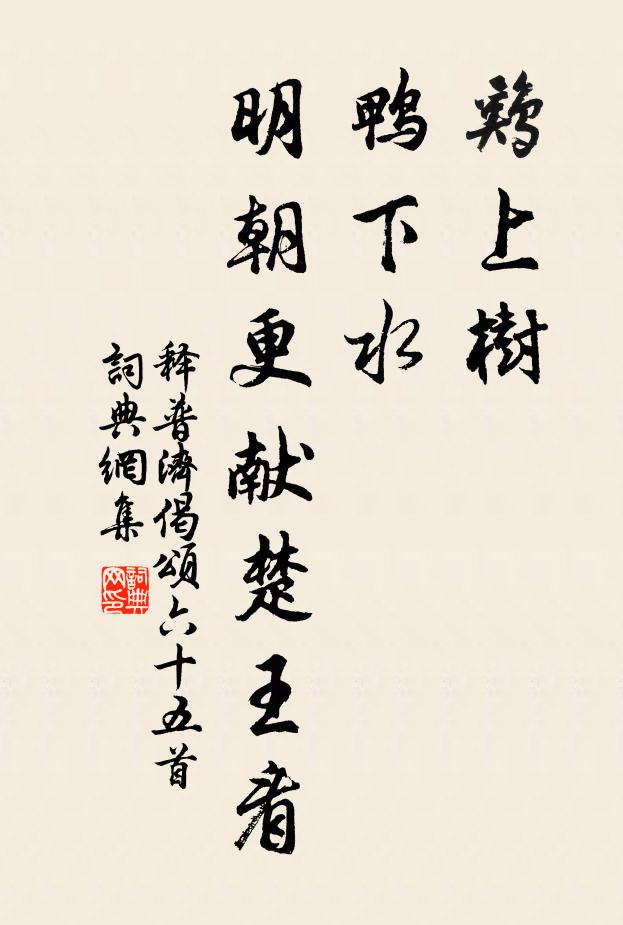 鷄上樹
鴨下水
明朝更献楚王看
释普濟偈頌六十五首
詞典網集
詞典網印